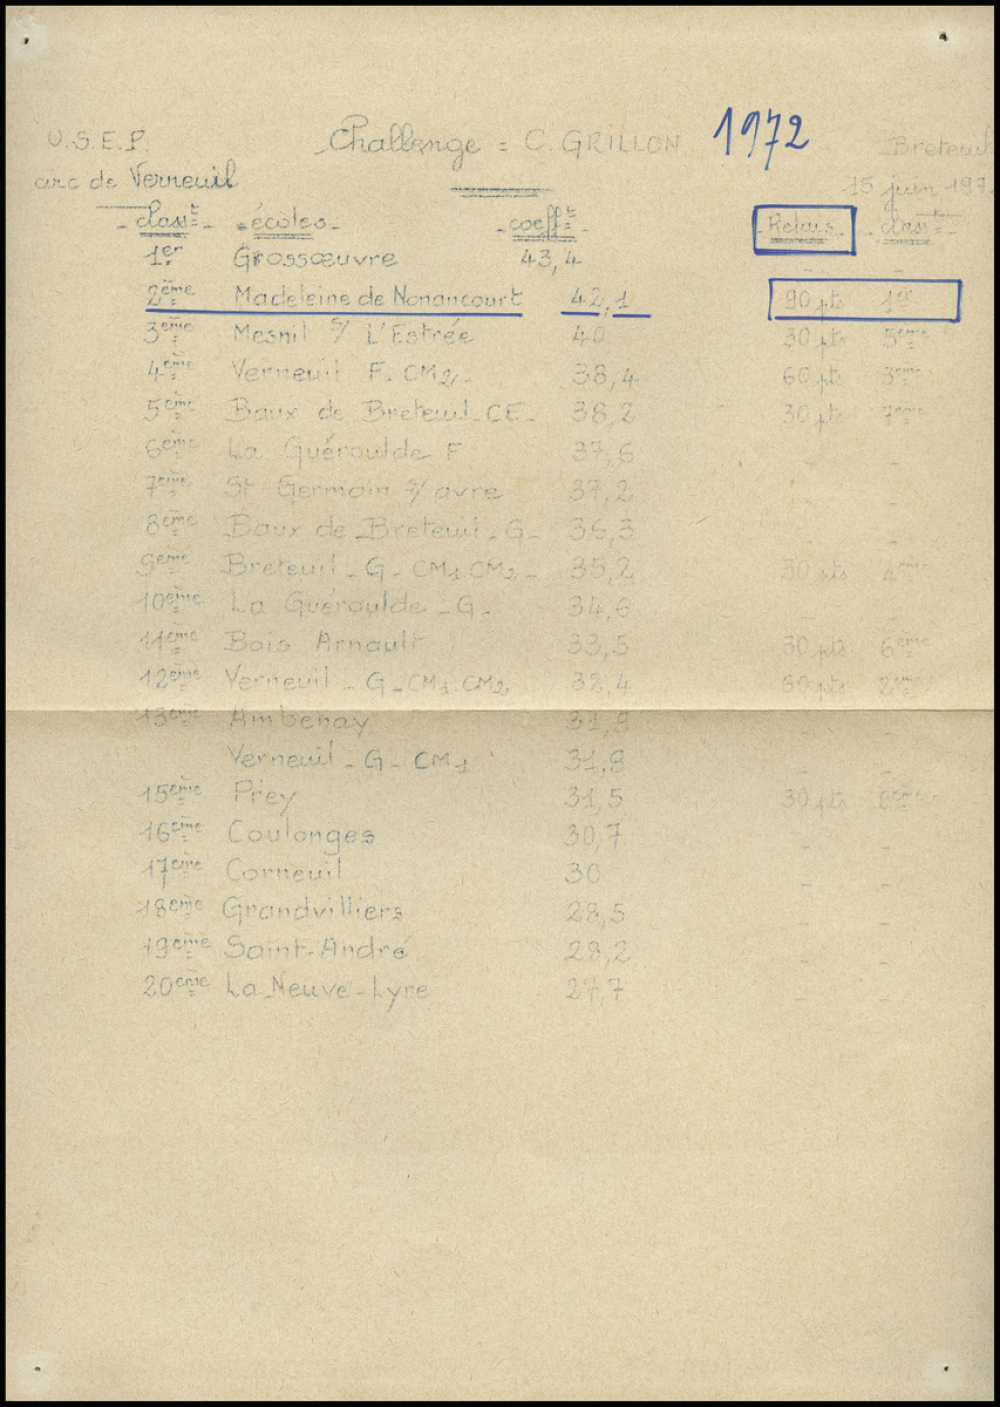 U.S.E.P. Challenge = C. GRILLON 1972 Breteuil
circ de Verneuil 15 juin 197
- classt - - écoles - - coefft - - Relais - - classt -
1er Grossœuvre 43,4 - -
2ème Madeleine de Nonancourt 42,1 90 pts 1er
3ème Mesnil s/ L'Estrée 40 30 pts 5ème
4ème Verneuil F. CM2 - 38,4 60 pts 3ème
5ème Baux de Breteuil - CE - 38,2 30 pts 7ème
6ème La Guéroulde F 37,6 - -
7ème St Germain s/ avre 37,2 - -
8ème Baux de Breteuil - G - 36,3 - -
9ème Breteuil - G - CM1 CM2 - 35,2 30 pts 4ème
10ème La Guéroulde - G - 34,6 - -
11ème Bois Arnault 33,5 30 pts 6ème
12ème Verneuil - G - CM1 CM2 32,4 pts 2ème
13ème Ambenay 31,8 - -
Verneuil - G - CM1 31,8 - -
15ème Prey 31,5 30 pts 8ème
16ème Coulonges 30,7 - -
17ème Corneuil 30 - -
18ème Grandvilliers 28,5 - -
19ème Saint-André 28,2 - -
20ème La Neuve-Lyre 27,7 - -